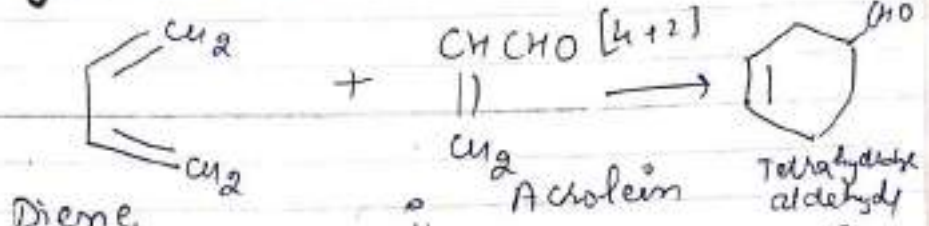 CH2 + CHCHO [4+2] CHO
||
CH2 CH2
Diene Acrolein Tetrahydro
aldehyde